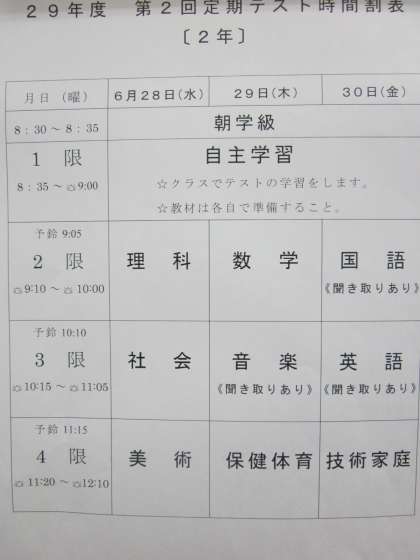 ２９年度　第２回定期テスト時間割表
〔２年〕
月日（曜）　６月２８日(水)　２９日(木)　３０日(金)
8：30～8：35　朝学級
１　限　自主学習
8：35～🔔9:00　☆クラスでテストの学習をします。
☆教材は各自で準備すること。
予鈴 9:05
２　限　理　科　数　学　国　語
🔔9:10 ～🔔10:00　《聞き取りあり》
予鈴 10:10
３　限　社　会　音　楽　英　語
🔔10:15 ～🔔11:05　《聞き取りあり》　《聞き取りあり》
予鈴 11:15
４　限　美　術　保健体育　技術家庭
🔔11:20 ～🔔12:10